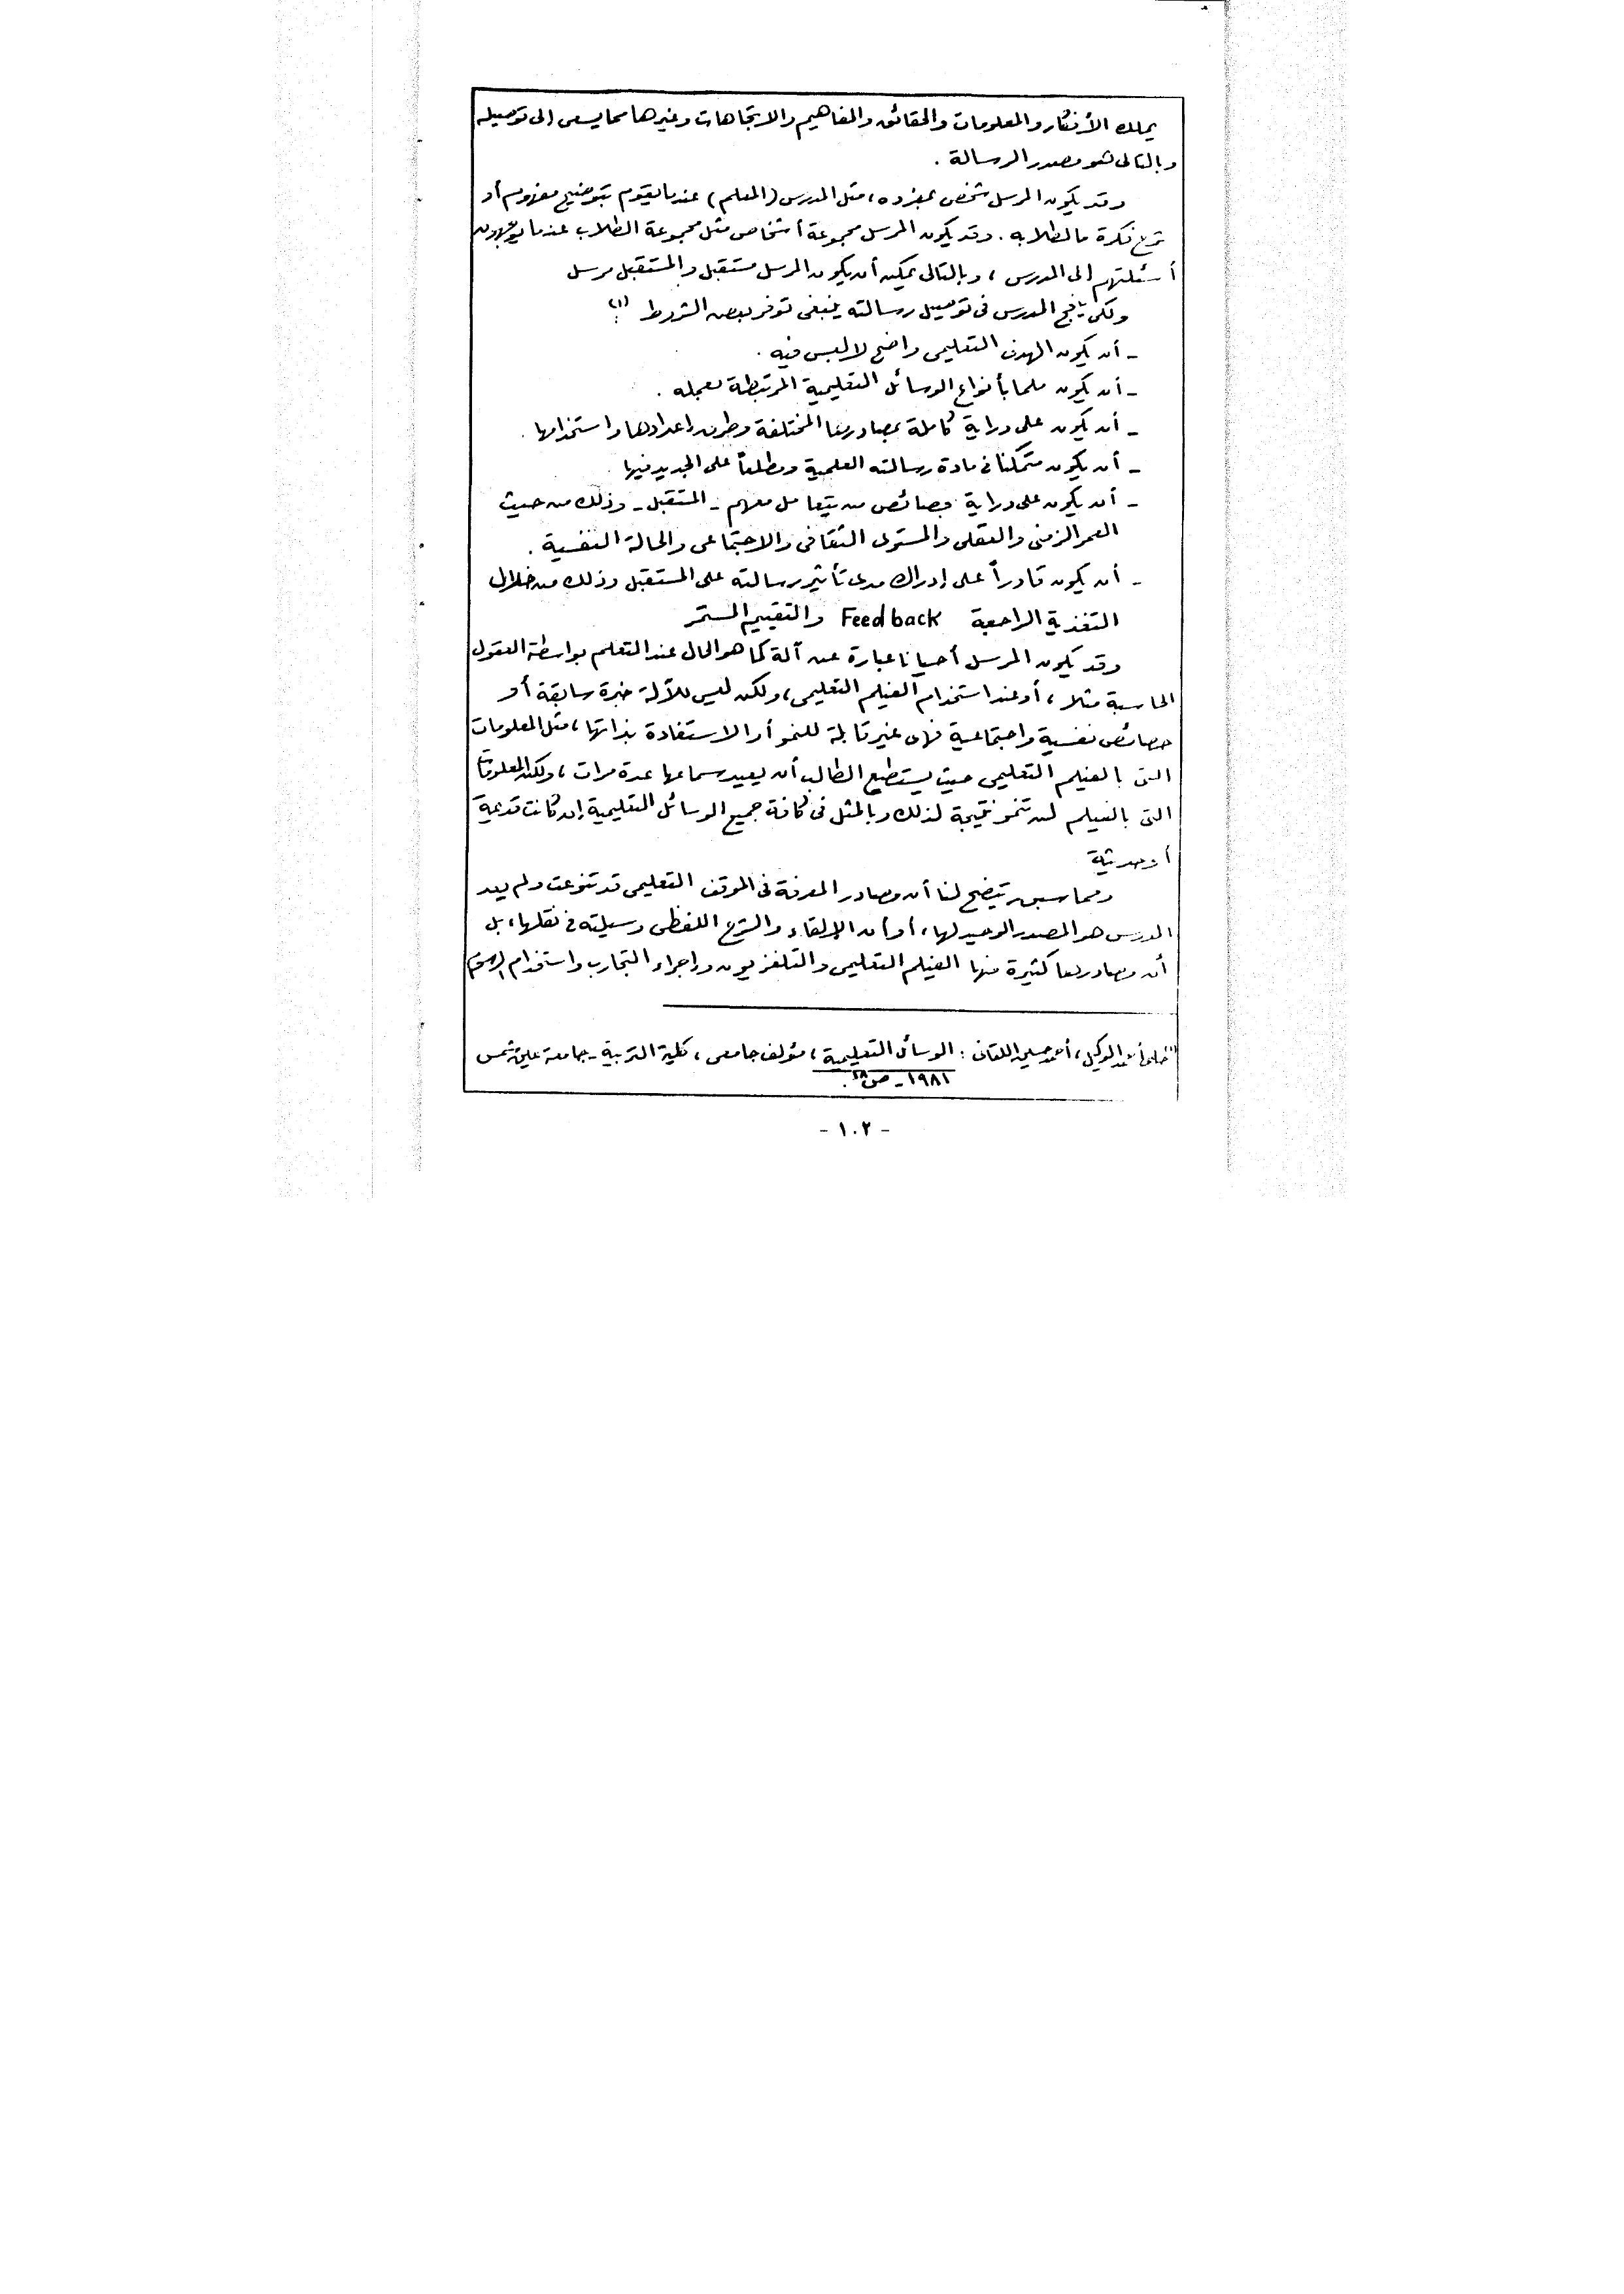 يملك الأفكار والمعلومات والحقائق والمفاهيم والاتجاهات وغيرها مما يسعى إلى توصيله
وبالتالى فهو مصدر الرسالة .
وقد يكون المرسل شخص بمفرده ، مثل المدرس (المعلم) عندما يقوم بتوضيح مفهوم أو
شرح فكرة ما لطلابه . وقد يكون المرسل مجموعة أشخاص مثل مجموعة الطلاب عندما يوجهون
أسئلتهم إلى المدرس ، وبالتالى يمكن أن يكون المرسل مستقبل والمستقبل مرسل
ولكى ينجح المدرس فى توصيل رسالته ينبغى توفر بعض الشروط (١) :
- أن يكون الهدف التعليمى واضح لا لبس فيه .
- أن يكون ملما بأنواع الوسائل التعليمية المرتبطة بعمله .
- أن يكون على دراية كاملة بمصادرها المختلفة وطرق إعدادها واستخدامها .
- أن يكون متمكنا فى مادة رسالته العلمية ومطلعاً على الجديد فيها .
- أن يكون على دراية بخصائص من يتعامل معهم - المستقبل - وذلك من حيث
العمر الزمنى والعقلى والمستوى الثقافى والاجتماعى والحالة النفسية .
- أن يكون قادراً على إدراك مدى تأثير رسالته على المستقبل وذلك من خلال
التغذية الراجعية Feedback والتقييم المستمر
وقد يكون المرسل أحيانا عبارة عن آلة كما هو الحال عند التعلم بواسطة العقول
الحاسبة مثلا ، أو عند استخدام الفيلم التعليمى ، ولكن ليس للآلة خبرة سابقة أو
خصائص نفسية واجتماعية فهى غير قابلة للنمو أو الاستفادة بذاتها ، مثل المعلومات
التى بالفيلم التعليمى حيث يستطيع الطالب أن يعيد سماعها عدة مرات ، ولكن المعلومات
التى بالفيلم لن تنمو نتيجة لذلك وبالمثل فى كافة جميع الوسائل التعليمية إن كانت قديمة
أو حديثة
ومما سبق يتضح لنا أن مصادر المعرفة فى الموقف التعليمى قد تنوعت ولم يعد
المدرس هو المصدر الوحيد لها ، أو أن الإلقاء والشرح اللفظى وسيلته فى نقلها ، بل
أن مصادرها كثيرة منها الفيلم التعليمى والتلفزيون وإجراء التجارب واستخدام
الوكيل ، أحمد حسين اللقانى : الوسائل التعليمية ، مؤلف جامعى ، كلية التربية - جامعة عين شمس
١٩٨١ - ص
- ١٠٢ -